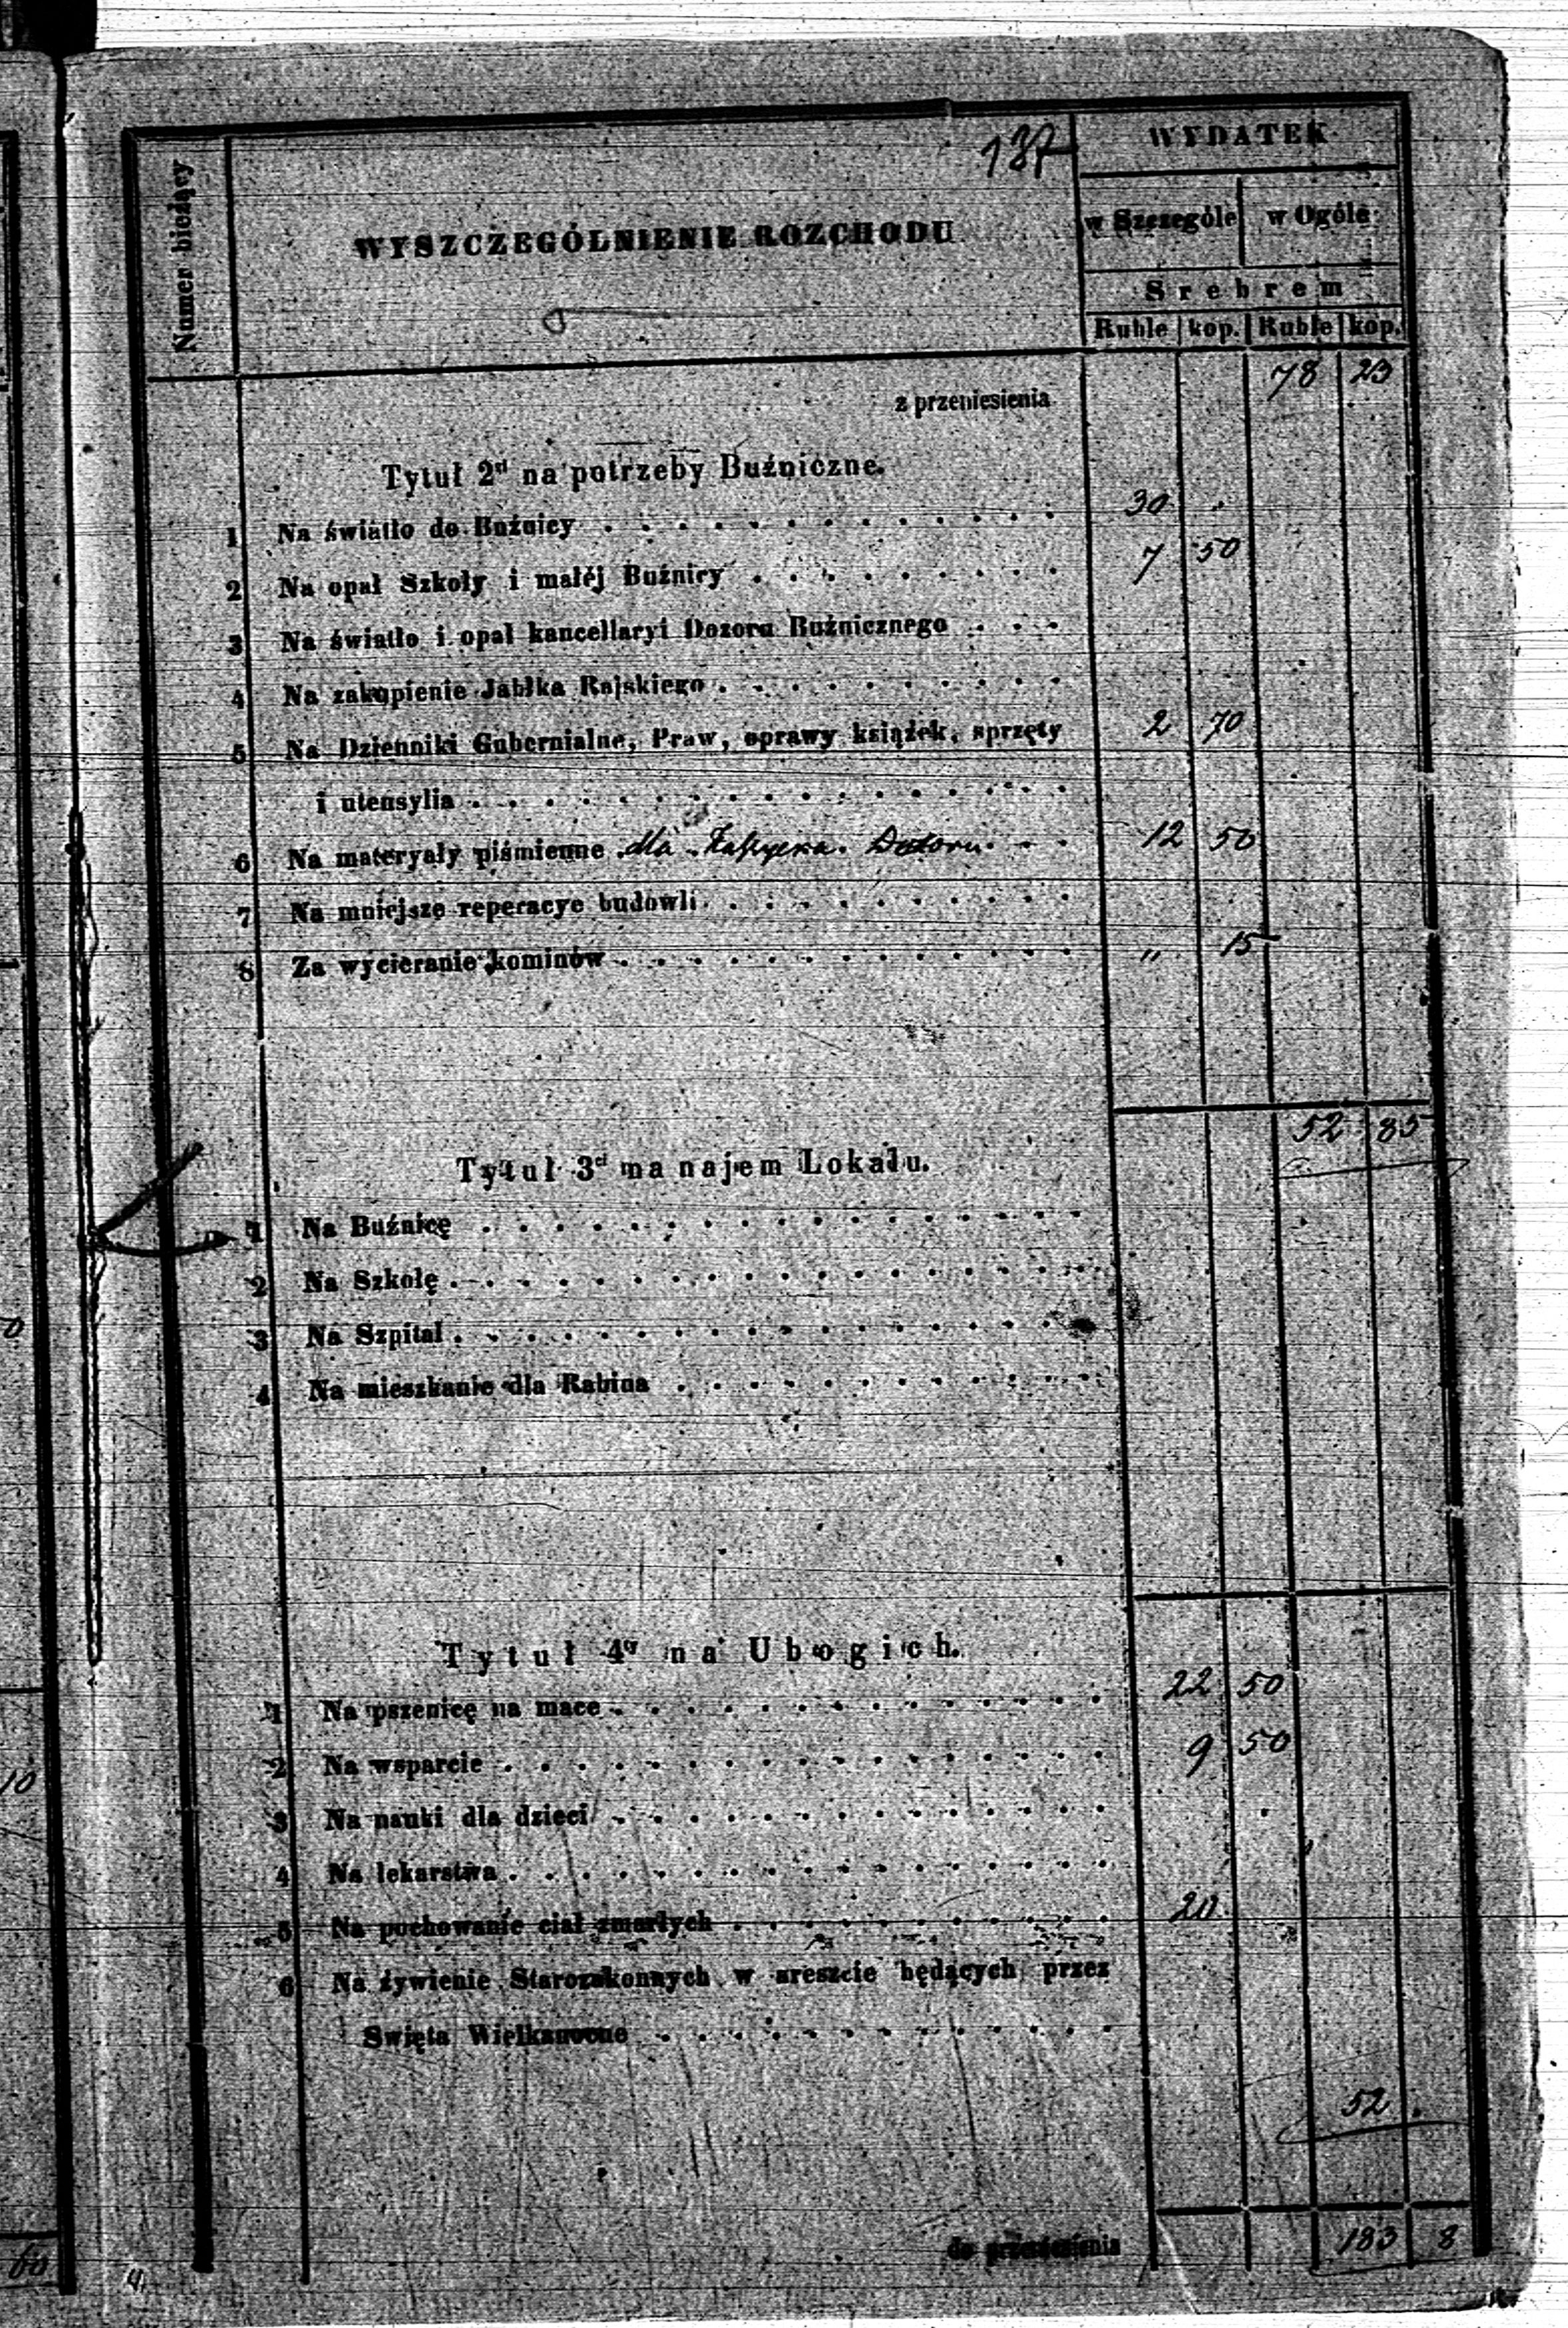 137
Numer bieżący
WYSZCZEGÓLNIENIE ROZCHODU
WYDATEK
w Szczególe w Ogóle
Srebrem
Ruble kop. Ruble kop.
z przeniesienia 78 23
Tytuł 2gi na potrzeby Buźniczne.
1 Na światło do Buźnicy 30
2 Na opał Szkoły i małéj Buźnicy 7 50
3 Na światło i opał kancellaryi Dozoru Buźnicznego
4 Na zakupienie Jabłka Rajskiego
5 Na Dzienniki Gubernialne, Praw, oprawy książek, sprzęty 2 70
i utensylia
6 Na materyały piśmienne dla Dozoru 12 50
7 Na mniejsze reperacye budowli
8 Za wycieranie kominów " 15
52 85
Tytuł 3ci na najem Lokalu.
1 Na Buźnicę
2 Na Szkołę
3 Na Szpital
4 Na mieszkanie dla Rabina
Tytuł 4ty na Ubogich.
1 Na pszenicę na mace 22 50
2 Na wsparcie 9 50
3 Na nauki dla dzieci
4 Na lekarstwa
5 Na pochowanie ciał zmarłych 20
6 Na żywienie Starozakonnych w areszcie będących przez
Święta Wielkanocne
52
do przeniesienia 183 8
4.
0
10
60